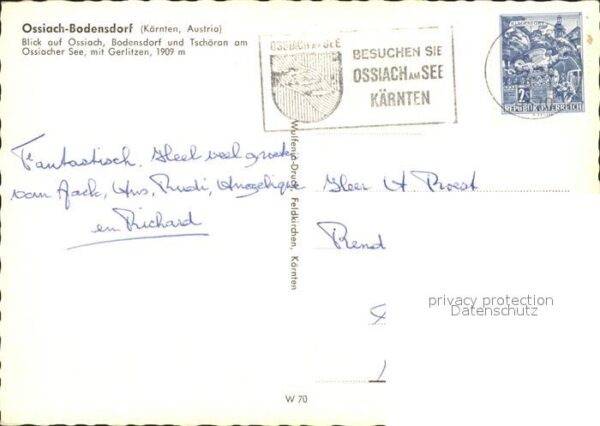 Ossiach-Bodensdorf (Kärnten, Austria)
Blick auf Ossiach, Bodensdorf und Tschöran am
Ossiacher See, mit Gerlitzen, 1909 m
OSSIACH AM SEE
BESUCHEN SIE
OSSIACH AM SEE
KÄRNTEN
KLAGENFURT
2S
REPUBLIK ÖSTERREICH
Fantastisch. Heel veel groet
van Jack, Ans, Rudi, Angelique
en Richard
Wulfenia-Druck, Feldkirchen, Kärnten
Heer A Proest
Rend
privacy protection
Datenschutz
W 70